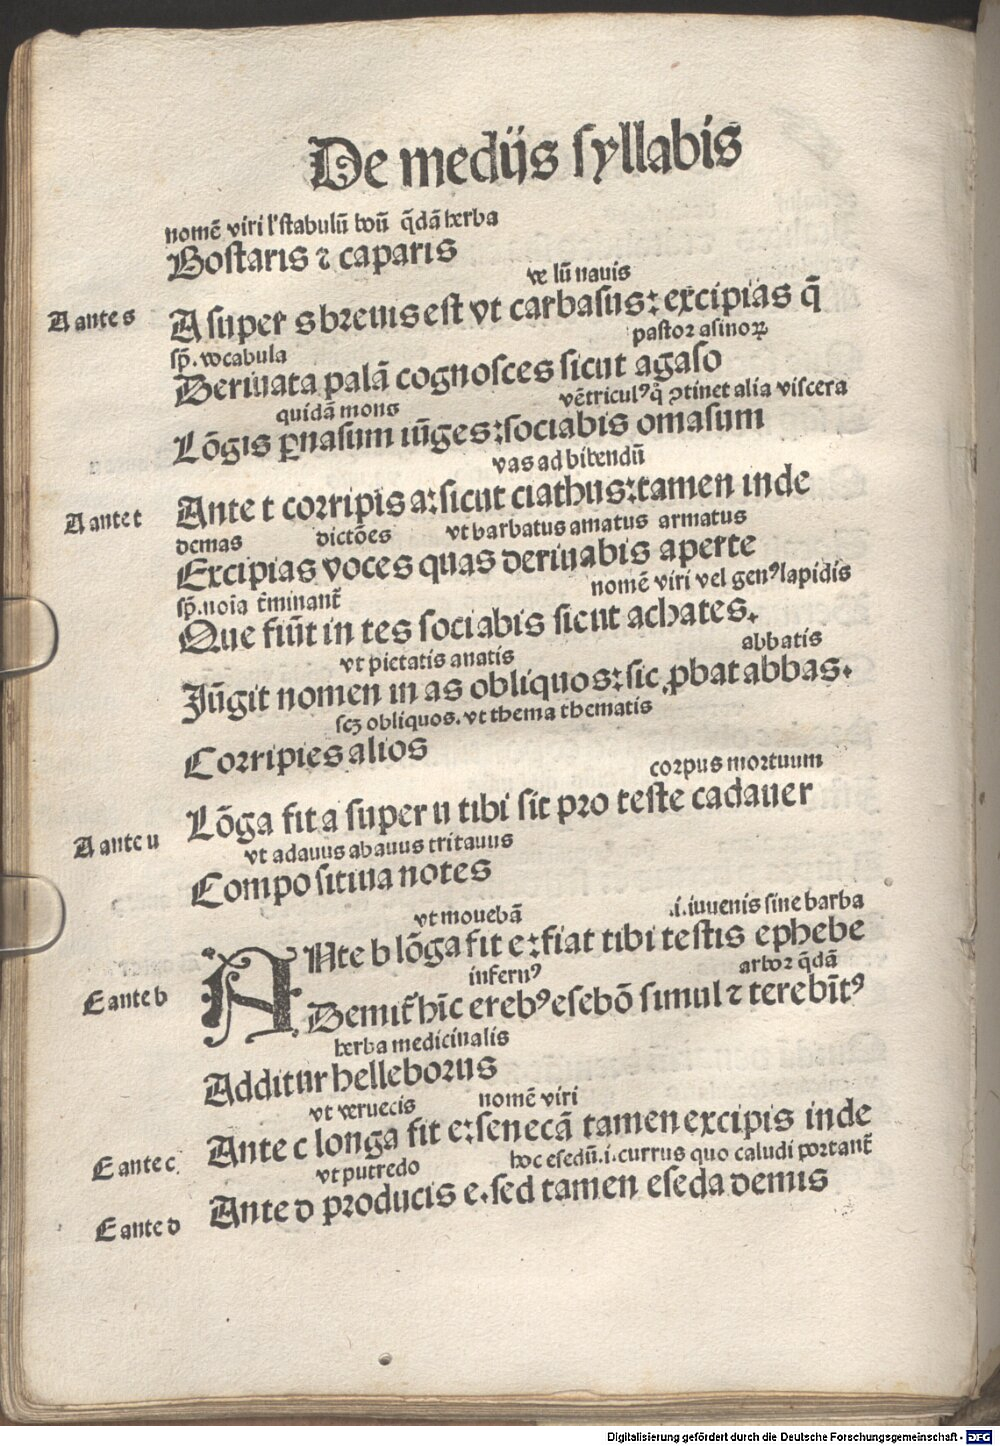 De medijs syllabis
nomē viri l' stabulū boū q̄dā herba
Bostaris ⁊ caparis
ve lū nauis
A ante s
A super s breuis est vt carbasus: excipias q̄
pastor asinoꝝ
sp̄. vocabula
Deriuata palā cognosces sicut agaso
vētriculꝰ q̄ ꝯtinet alia viscera
quidā mons
Lōgis ꝑnasum iūges: sociabis omasum
vas ad bibendū
A ante t
Ante t corripis a: sicut ciathus: tamen inde
demas dictōes vt barbatus amatus armatus
Excipias voces quas deriuabis aperte
nomē viri vel genꝰ lapidis
sp̄. noīa t̄minant̄
Que fiūt in tes sociabis sicut achates.
abbatis
vt pietatis anatis
Jūgit nomen in as obliquos: sic ꝓbat abbas.
scꝫ obliquos. vt thema thematis
Corripies alios
corpus mortuum
Lōga fit a super u tibi sit pro teste cadauer
A ante u
vt adauus abauus tritauus
Compositiua notes
vt mouebā .i. iuuenis sine barba
ANte b lōga fit e: fiat tibi testis ephebe
E ante b
infernꝰ arbor q̄dā
Demit̄ hīc erebꝰ esebō simul ⁊ terebītꝰ
herba medicinalis
Additur helleborus
vt veruecis nomē viri
E ante c
Ante c longa fit e: senecā tamen excipis inde
vt putredo hoc esedū. i. currus quo caludi portant̄
E ante d
Ante d producis e. sed tamen eseda demis
Digitalisierung gefördert durch die Deutsche Forschungsgemeinschaft - DFG